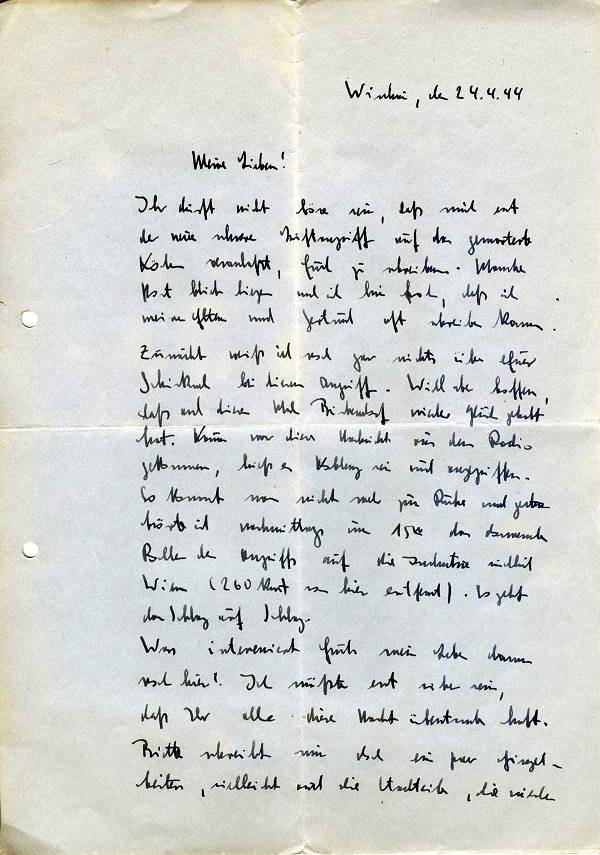 den 24.4.44
Meine Lieben!
Ihr dürft nicht böse sein, daß mich erst
der neue schwere Luftangriff auf das gemarterte
Köln veranlaßt, Euch zu schreiben. Manche
Post blieb liegen und ich bin froh, daß ich
meinen Eltern und Gertrud oft schreiben kann.
Zunächst weiß ich noch gar nichts über Euer
Schicksal bei diesem Angriff. Will aber hoffen,
daß auch dieses Mal Bickendorf wieder Glück gehabt
hat. Kaum war diese Nachricht aus dem Radio
gekommen, hieß es Koblenz sei auch angegriffen.
So kommt man nicht mehr zur Ruhe und gestern
hörte ich nachmittags um 15 das dauernde
des Angriffs auf die Industrie südlich
Wien (260 km von hier entfernt). Es geht
da Schlag auf Schlag.
Was interessiert Euch mein Leben dann
noch hier! Ich müßte erst sicher sein,
daß Ihr alle diese Nacht überstanden habt.
Bitte schreibt mir doch ein paar Einzel-
heiten, vielleicht auch die Stadtteile, die wieder